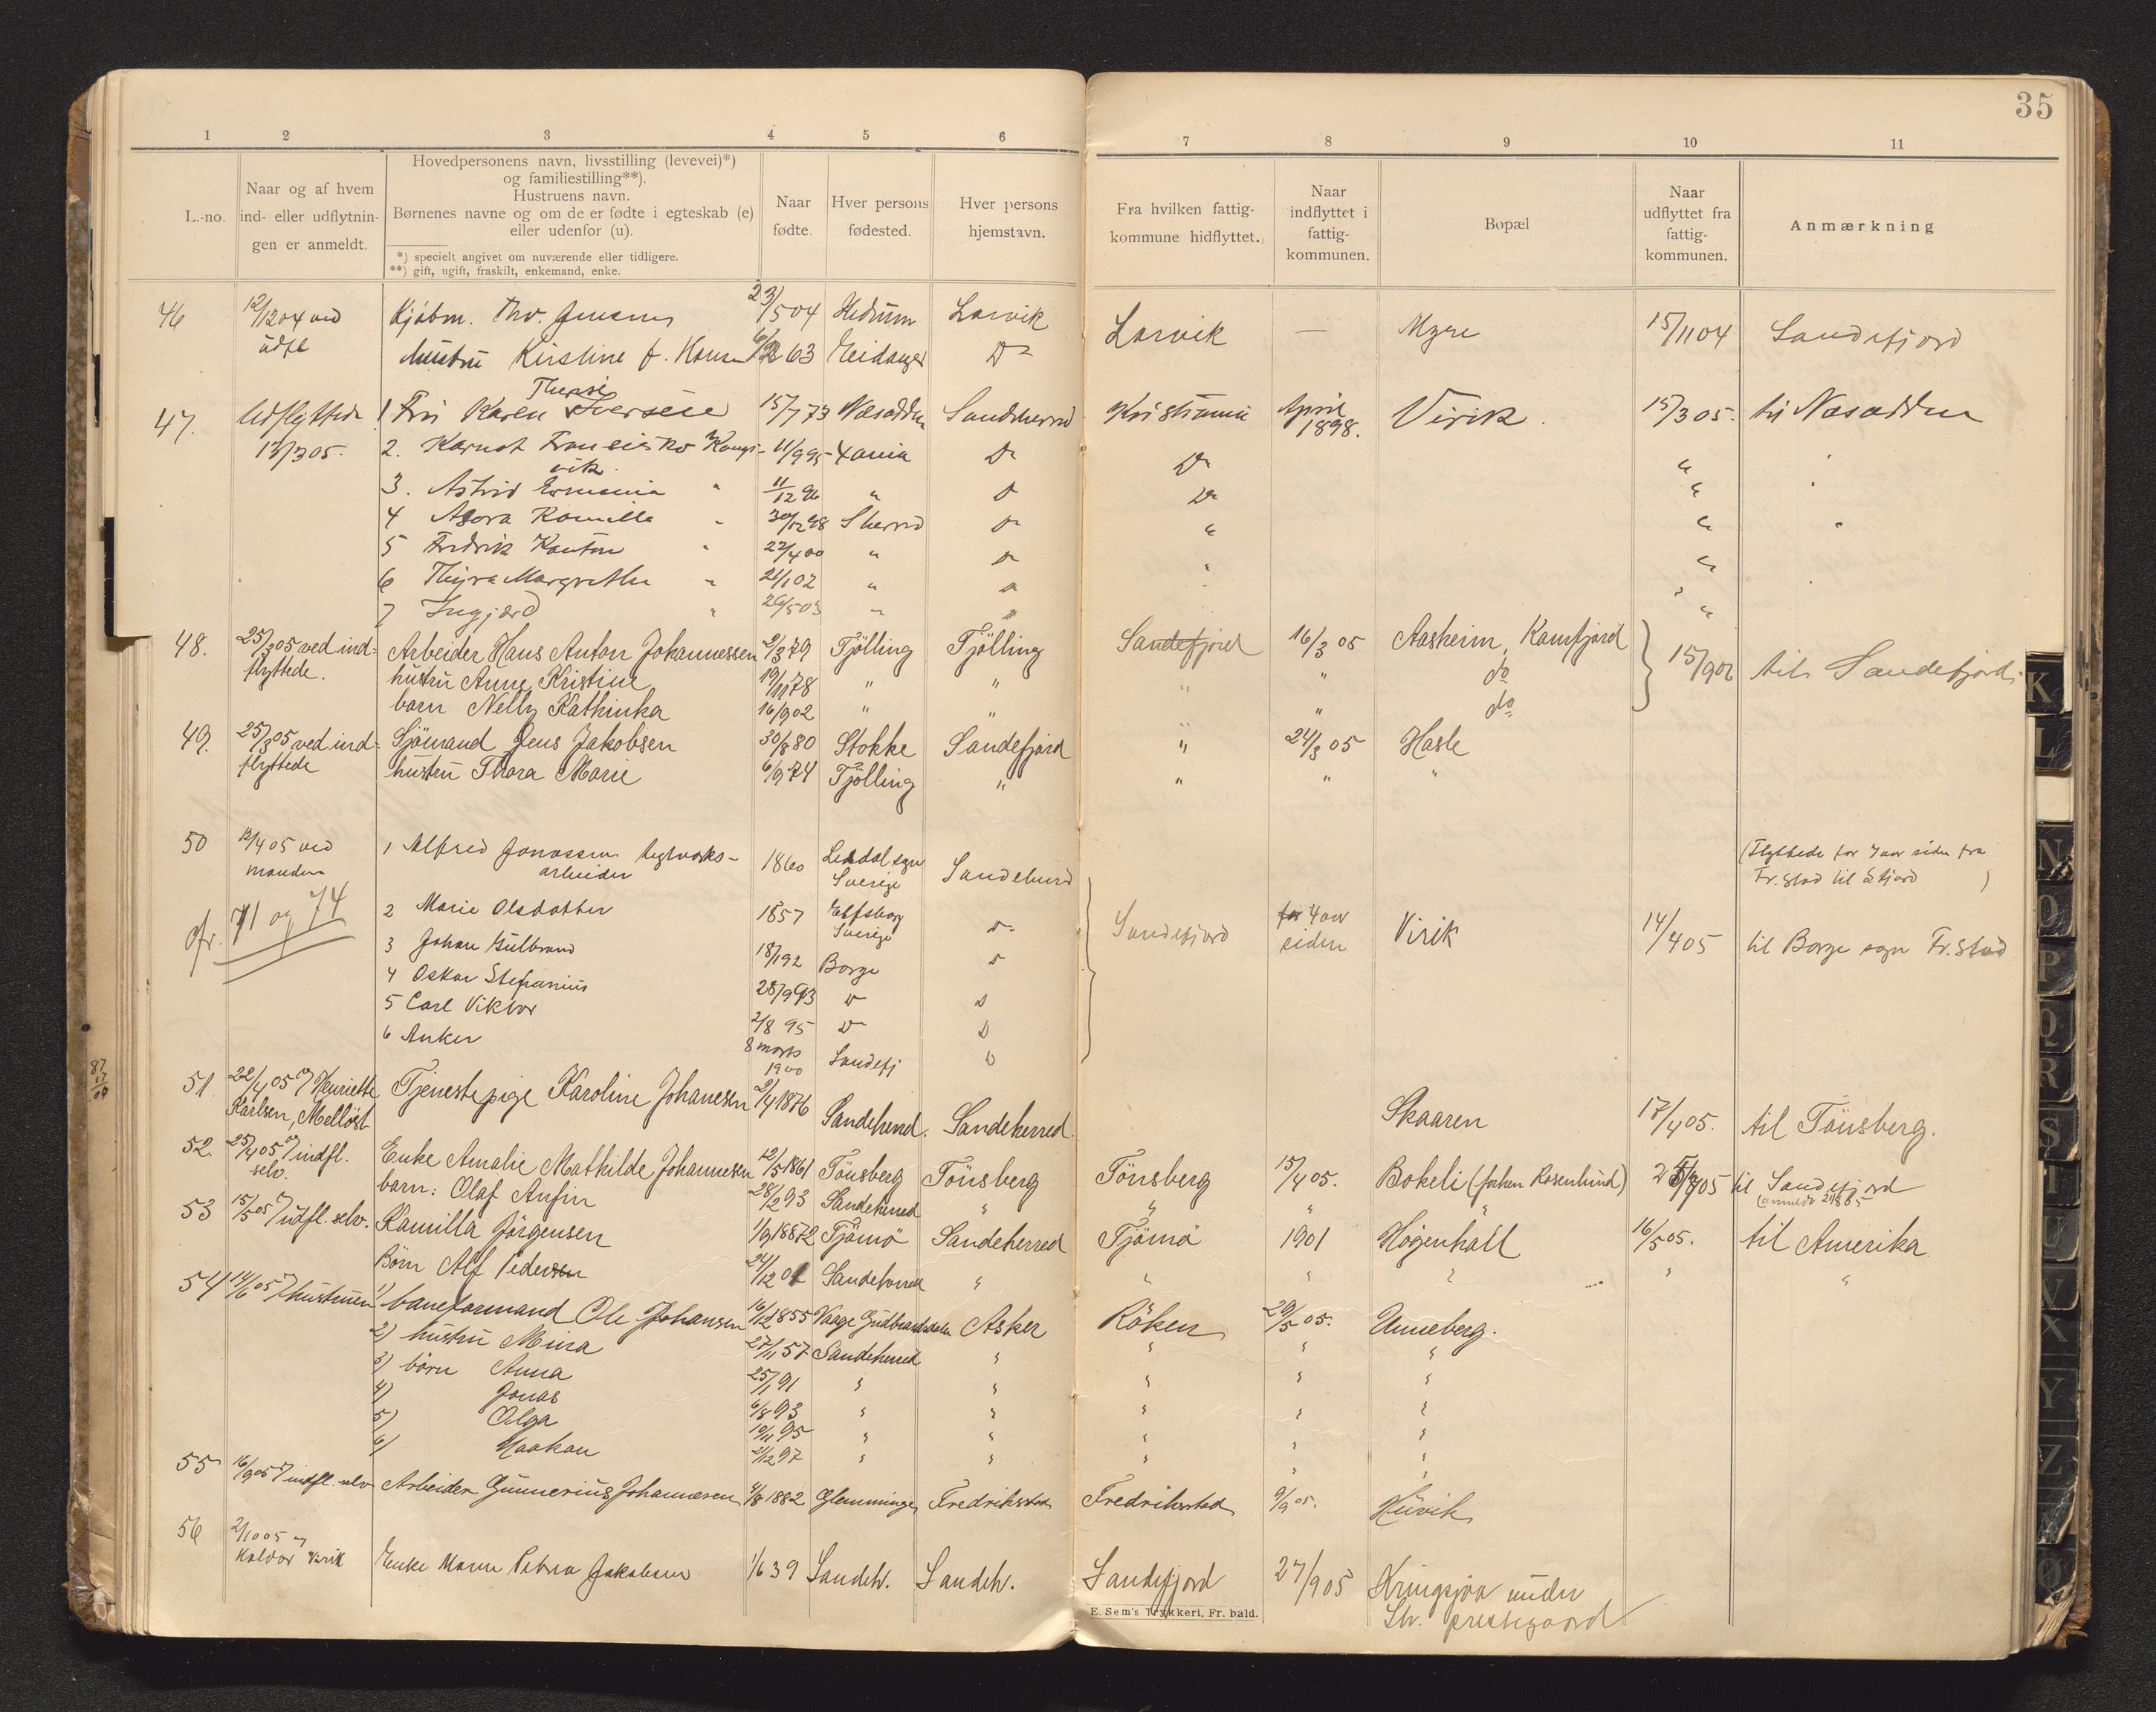 35
1 2 3 4 5 6 7 8 9 10 11
L.-no.
Naar og af hvem
ind- eller udflytnin-
gen er anmeldt.
Hovedpersonens navn, livsstilling (levevei)*)
og familiestilling**).
Hustruens navn.
Børnenes navne og om de er fødte i egteskab (e)
eller udenfor (u).
*) specielt angivet om nuværende eller tidligere.
**) gift, ugift, fraskilt, enkemand, enke.
Naar
fødte.
Hver persons
fødested.
Hver persons
hjemstavn.
Fra hvilken fattig-
kommune hidflyttet.
Naar
indflyttet i
fattig-
kommunen.
Bopæl
Naar
udflyttet fra
fattig-
kommunen.
Anmærkning
46 12/12 04 ved Kjøbm. Thv. Jensen 23/5 04 Hedrum Larvik Larvik — Myre 15/11 04 Sandefjord
udfl hustru Kirstine f. Hansen 63 Eidanger Do
Therese
47. Udflyttede 1 Fru Karen Iversen 15/7 73 Næsodden Sandeherred Kristiania April 1898. Virik. 15/3 05. til Næsodden
13/3 05. 2. Fransisko Kongs- 11/9 95 Xania Do Do "
vik
3. Astrid " 11/12 96 " D Do "
4 Kamilla " 30/12 98 Sherred Do " "
5 Fredrik " 22/4 00 " Do " "
6 Thyra Margrethe " 21/1 02 " D "
7 Ingjærd " 26/5 03 " D "
48. 25/3 05 ved ind- Arbeider Hans Anton Johannessen 2/3 79 Tjölling Tjölling Sandefjord 16/3 05 Aasheim, Kamfjord 15/9 06 til Sandefjord.
flyttede. hustru Anne Kristine 19/11 78 " " " " do
barn Nelly Kathinka 16/9 02 " " " do
49. 25/3 05 ved ind- Sjömand Jens Jakobsen 30/8 80 Stokke Sandefjord " 24/3 05 Hasle
flyttede hustru Thora Marie 6/9 74 Tjölling " " " "
50 12/4 05 ved 1 Alfred Jonassen teglverks- 1860 sogn Sandeherred (Flyttede for 7 aar siden fra
manden arbeider Sverige Fr.stad til Sfjord )
cfr. 71 og 74 2 Marie Olsdatter 1857 Elfsborg Do Sandefjord for 4 aar Virik 14/4 05 til Borge sogn Fr.stad
Sverige siden
3 Johan Gulbrand 18/1 92 Borge D
4 Oskar Stefanius 28/9 93 D D
5 Carl Viktor 2/8 95 D D
6 Anker 8 marts 1900 Sandefj D
51. 22/4 05 Henriette Tjenestepige Karoline Johanesen 2/4 1876 Sandeherred. Sandeherred. Skaaren 17/4 05. til Tönsberg.
Karlsen, Melløst
52. 25/4 05 indfl. Enke Amalie Mathilde Johannesen 12/5 1861 Tönsberg Tönsberg Tönsberg 15/4 05. Bokeli (forhen Rosenlund) til Sandefjord
selv. barn: Olaf Anfin 28/2 93 Sandeherred " " " "
53 15/5 05 udfl. selv. Kamilla Jörgensen 1/9 1872 Tjömö Sandeherred Tjömö 1901 Högenhall 16/5 05. til Amerika.
Börn Alf Pedersen 24/12 01 Sandeherred " " " " " "
54 14/6 05 hustruen 1) baneformand Ole Johansen 16/12 1855 Vaage Gudbrandsdalen Asker Röken 29/5 05. Unneberg.
2) hustru Mina 27/11 57 Sandeherred " " " "
3) börn Anna 25/1 91 " " " " "
4) Jonas 6/8 93 " " " " "
5) Olga 10/11 95 " " " " "
6) Haakon 2/12 97 " " " " "
55 16/9 05 indfl. selv Arbeider Gunnerius Johannesen 4/8 1882 Glemminge Fredriksstad Fredriksstad 9/9 05. Huvik
56 2/10 05 Enke Maren Petrea Jakobsen 1/6 39 Sandeh. Sandeh. Sandefjord 27/9 05 Kringsjaa under
Kaldor Virik Sh. prestegaard
E. Sem's Trykkeri, Fr. hald.
K L N O P Q R S T U V X Y Z Æ Ø